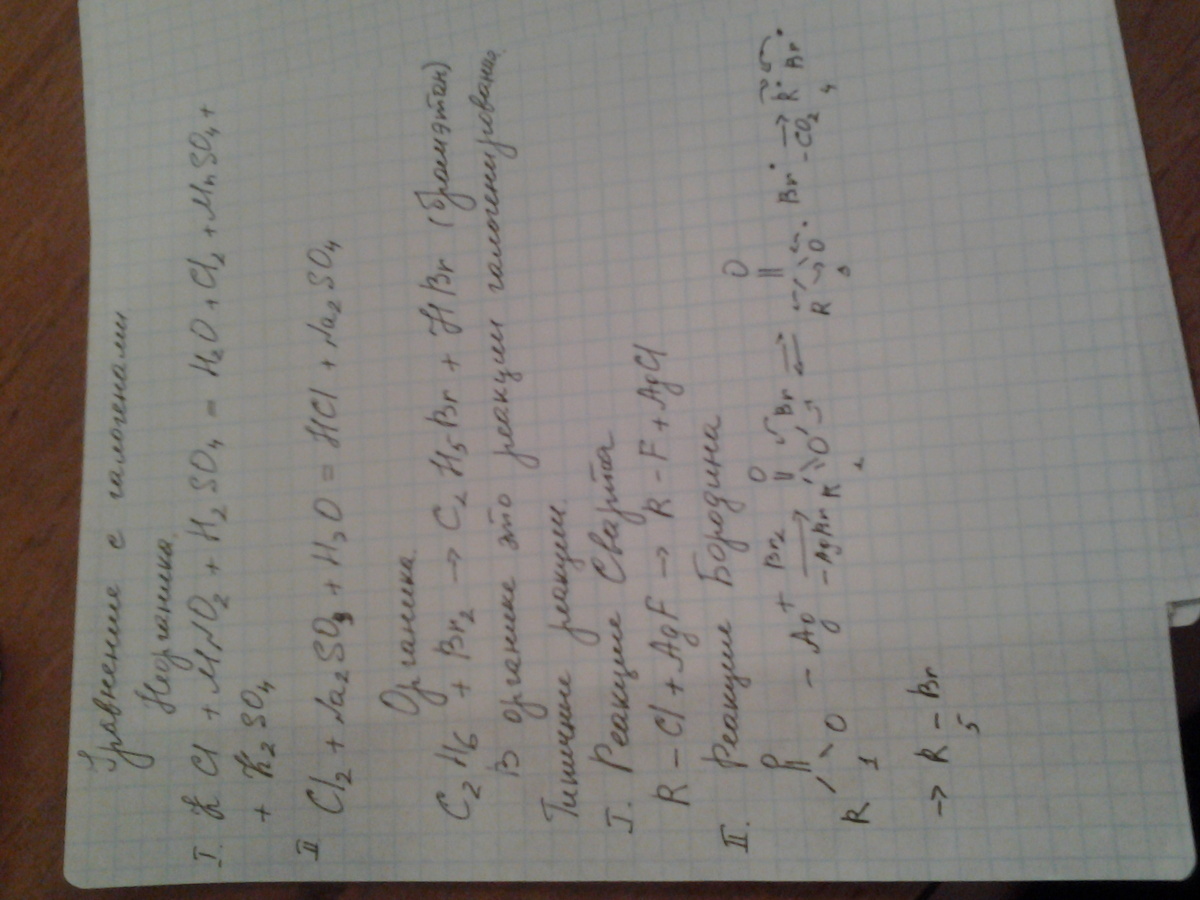 Уравнение с галогенами
Неорганика.
I. K Cl + MNO2 + H2SO4 = H2O + Cl2 + MnSO4 +
+ K2SO4
II Cl2 + Na2SO3 + H2O = HCl + Na2SO4
Органика.
C2H6 + Br2 → C2H5Br + HBr (бромэтан)
В органике это реакции галогенирования.
Типичные реакции.
I. Реакция Свартса
R - Cl + AgF → R - F + AgCl
II. Реакция Бородина
O - Ag + Br2 → O Br ⇌ O Br• → R• Br•
R O - AgBr R O R O• - CO2
1 2 3 4
→ R - Br
5